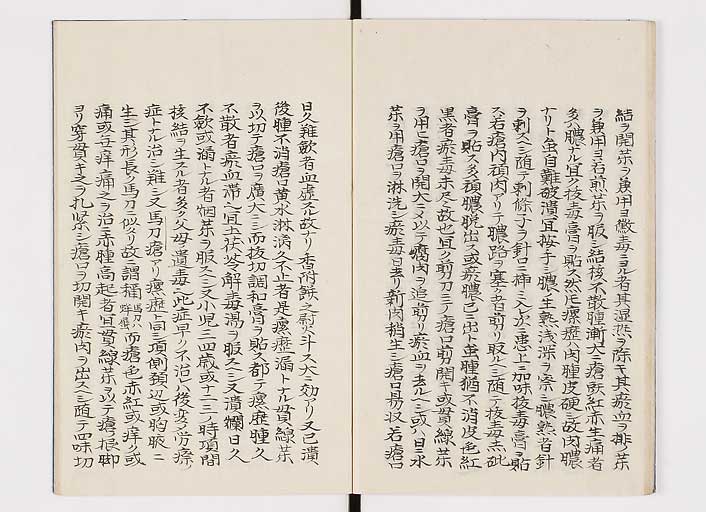 結ヲ開茶ヲ兼用ヨ黴毒ニヨル者其湿熱ヲ除キ其瘀血ヲ排茶
ヲ兼用ヨ右煎茶ヲ服シ結核不散腫漸大ニ瘡既紅赤生痛者
多ハ膿トル宜ク抜毒膏ヲ貼ス然𪜈瘰癧ハ肉腫皮硬シ故内膿
ナリト虽自難破潰宜按手シ膿ノ生熟浅深ヲ察シ膿熟者針
ヲ刺スヘシ随テ刺條寸ヲ針口ニ挿ミ入レ次ニ患上ニ加味抜毒膏ヲ貼
ス若瘡内頑肉アリテ膿路ヲ塞ク者剪リ取ルヘシ随テ抜毒茶此
膏ヲ貼ス多頑膿脱出ス或瘀膿已ニ出ト虽腫猶不消皮色紅
黒者瘀毒未尽故也宜ク剪刀ニテ瘡口剪開キ或貫線茶
ヲ用ヒ瘡口ヲ開大ニメ以テ腐肉ヲ追剪リ瘀血ヲ去ルヘシ或ハ日ニ水
茶ヲ用瘡口ヲ淋洗シ瘀毒日去リ新肉梢生シ瘡口易収若瘡口
日久難歛者血虚スル故アリ香附餅之ヲ熨斗ス大ニ効アリ又已潰
後腫不消瘡口黄水淋漓久不止者是瘰癧漏トナル貫線茶
ヲ以切テ瘡口ヲ廣大ニシ而抜切調和膏ヲ貼ス都テ瘰癧腫久
不散者瘀血滞ル宜土茯苓解毒湯ヲ服スヘシ又潰爛日久
不歛或漏トナル者烟茶ヲ服スヘシ又小児二四歳或十二三ノ時項間
核結ヲ生スル者多ク父母遺毒ニ此症早ク不治レハ後変シ労瘵
症トナル治シ難シ又馬刀瘡アリ瘰癧ト同シ項側頚辺或胸腋ニ
生シ其形長ク馬刀ニ似タリ故ニ謂種馬刀ハ蚌蠣而瘡色赤紅或痒ク或
痛或毎痒痛之ヲ治シ赤腫高起者宜貫線茶ヲ以テ瘡根脚
ヨリ穿貫キ之ヲ扎緊シ瘡口ヲ切開キ瘀肉ヲ出スヘシ随テ四味切